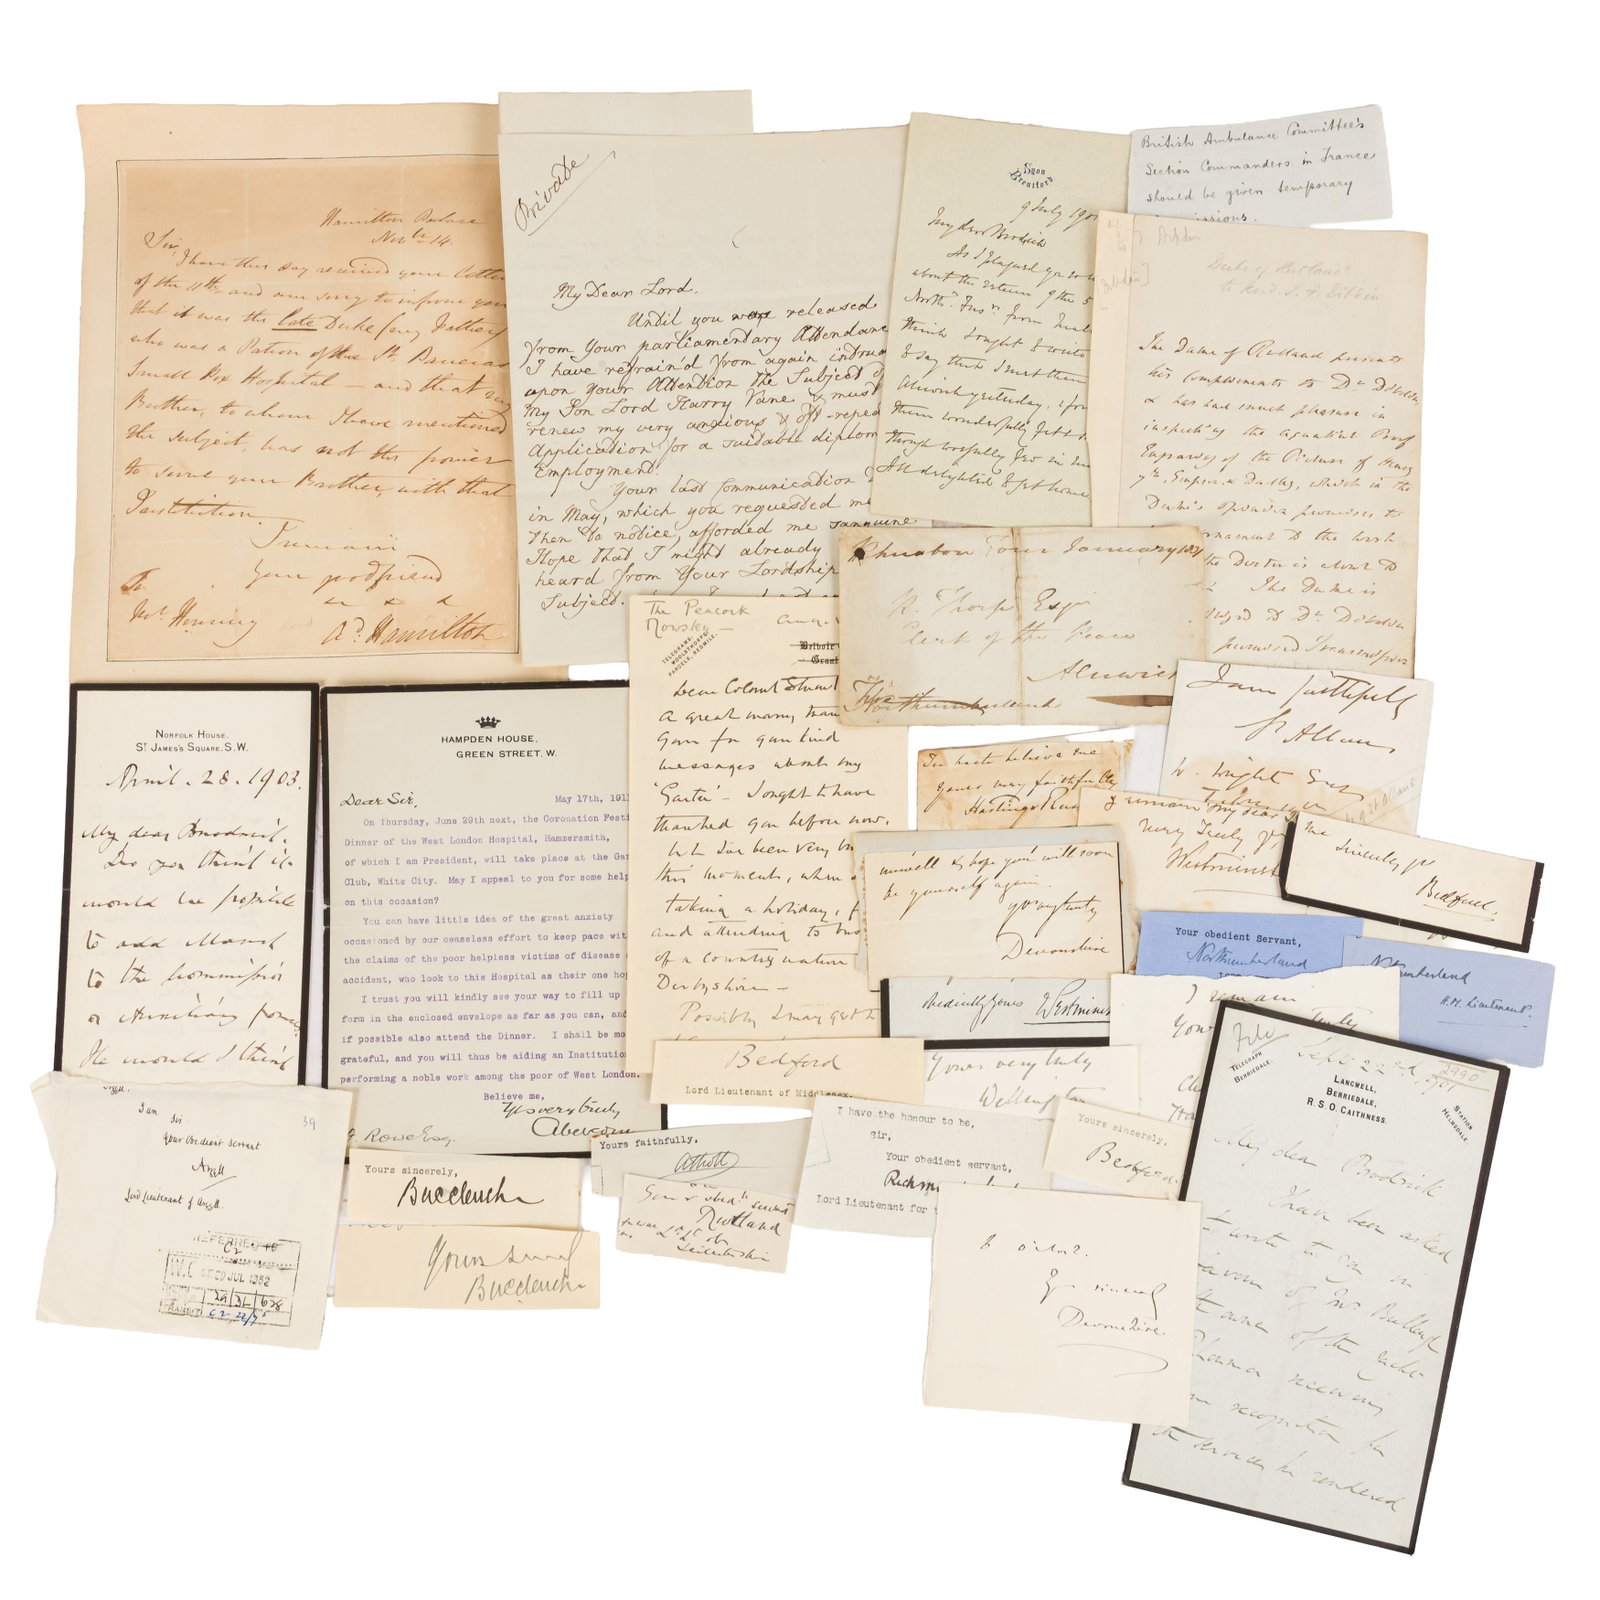 Hamilton Palace
Novbr 14.
Sir,
I have this day received your letter
of the 11th and am sorry to inform you
that it was the late Duke (my Father)
who was a Patron of the St. Pancras
Small Pox Hospital — and that my
Brother, to whom I have mentioned
the subject, has not the power
to serve your Brother, with that
Institution.
I remain
your good friend
Ad. Hamilton
To
Private
My Dear Lord.
Until you were released
from Your parliamentary Attendance
I have refrain'd from again intru
upon Your Attention the Subject of
My Son Lord Harry Vane & must
renew my very anxious & oft-repea
Application for a suitable diplom
Employment.
Your last Communication
in May, which you requested me
then to notice, afforded me sanguine
Hope that I might already
heard from Your Lordship
Subject.
Syon
Brentford
9 July 190
My dear Brodrick
As I plagued you so
about the return of the 5
North. Fusrs from
think I ought to write
to say that I met them
at yesterday, & found
them wonderfully fit
though woefully few in
All delighted to get home
British Ambulance Committee's
Section Commanders in France
should be given temporary
Dibdin
Duke of Rutland
to Revd. T. F. Dibdin
The Duke of Rutland presents
his compliments to Dr Dibdin,
& has had much pleasure in
inspecting the aquatint Proof
Engraving of the Picture of Henry
7th, Empson & Dudley, which in the
Duke's opinion promises to
ornament to the work
the Doctor is about to
The Duke is
to Dr Dibdin
Four January
R. Thorp Esqr
Clerk of the Peace
Alnwick
Northumberland
The Peacock
Rowsley —
TELEGRAMS,
WOOLSTHORPE.
PARCELS, REDMILE.
Belvoir
Grant
Dear Colonel Stuart
A great many than
you for your kind
messages about my
'Garter' — I ought to have
thanked you before now,
but I've been very
this moment, when
taking a holiday,
and attending to bus
of a country nature
Derbyshire —
Possibly I may get
I am faithfully
St Albans
NORFOLK HOUSE.
ST JAMES'S SQUARE. S.W.
April. 28. 1903.
My dear Brodrick.
Do you think it
would be possible
to add March
to the Commission
on Auxiliary forces.
He would I think
HAMPDEN HOUSE,
GREEN STREET. W.
Dear Sir,
May 17th, 191
On Thursday, June 29th next, the Coronation Festi
Dinner of the West London Hospital, Hammersmith,
of which I am President, will take place at the Gar
Club, White City. May I appeal to you for some help
on this occasion?
You can have little idea of the great anxiety
occasioned by our ceaseless effort to keep pace wit
the claims of the poor helpless victims of disease
accident, who look to this Hospital as their one hop
I trust you will kindly see your way to fill up
form in the enclosed envelope as far as you can, and
if possible also attend the Dinner. I shall be mo
grateful, and you will thus be aiding an Institution
performing a noble work among the poor of West London.
Believe me,
Yrs very truly
Abercorn
Rowe Esq.
believe me
yours very faithfully
I remain my dear
very truly yrs
Westminster
me
sincerely yrs
Bedford.
unwell & hope you'll soon
be yourself again.
yrs very truly
Devonshire
Your obedient Servant,
Northumberland
Northumberland
H.M. Lieutenant.
obediently yours
Westminst
I remain
Bedford
Lord Lieutenant of Middlesex.
Yours very truly
Wellington
I have the honour to be,
Sir,
Your obedient servant,
Richm
Lord Lieutenant for
Yours sincerely,
Bedford.
39
I am
Sir.
Your Obedient Servant
Argyll
Lord Lieutenant of Argyll.
REFERRED TO
C2
20 JUL 1952
29 31 628
TRANSIT C2 22/7
Yours sincerely,
Buccleuch
Buccleuch
Yours faithfully,
Atholl
Your obedt servant
Rutland
Leicestershire
Yrs sincerely
Devonshire
File
TELEGRAPH
BERRIEDALE.
Sept. 22nd, 1901
LANGWELL,
BERRIEDALE,
R.S.O. CAITHNESS.
STATION
HELMSDALE.
My dear Brodrick
I have been asked
to write to you in
favour of Mr Bullough
the owner of the yacht
Rhouma receiving
some recognition for
the services he rendered